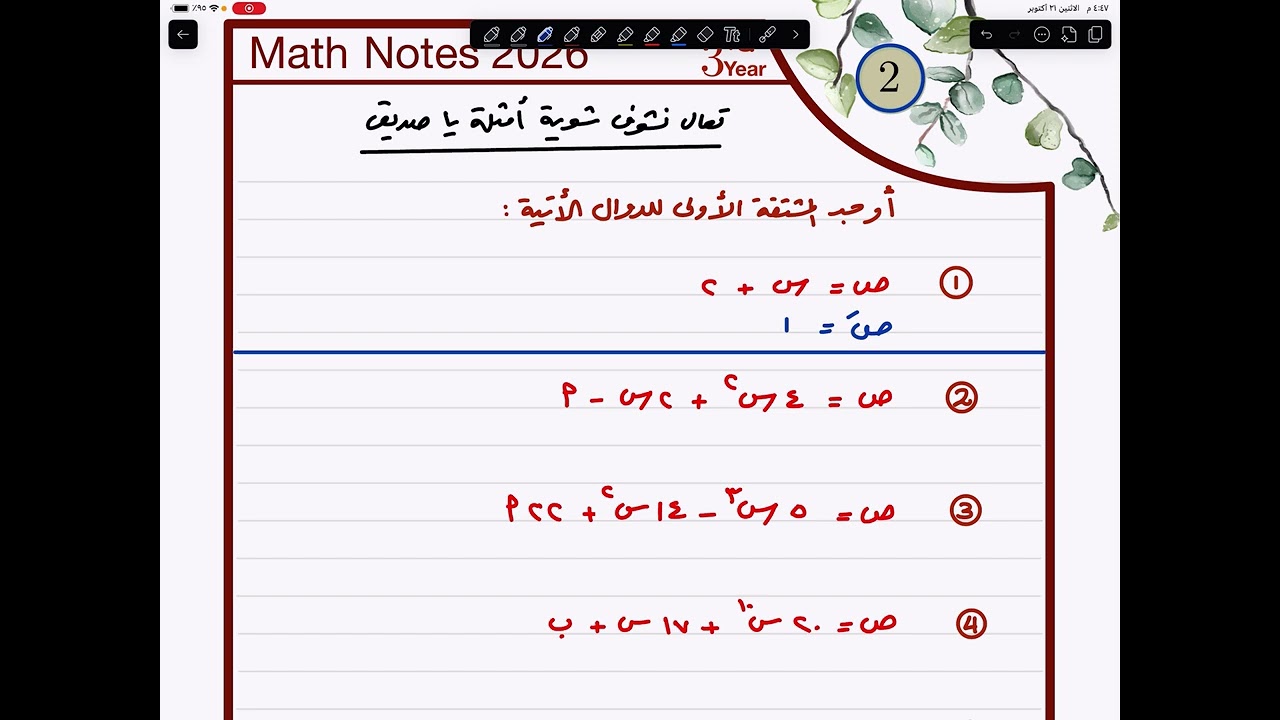 ٤:٤٧ م الاثنين ٢١ أكتوبر
٩٥٪
Math Notes 2026
3rd Year
2
تعال نشوف شوية أمثلة يا صديق
أوجد المشتقة الأولى للدوال الأتية :
① ص = س + ٢
صَ = ١
② ص = ٤س٢ + ٢س - ٩
③ ص = ٥س٣ - ١٤س٢ + ٢٢٩
④ ص = ٢٠س١٠ + ١٧س + ب